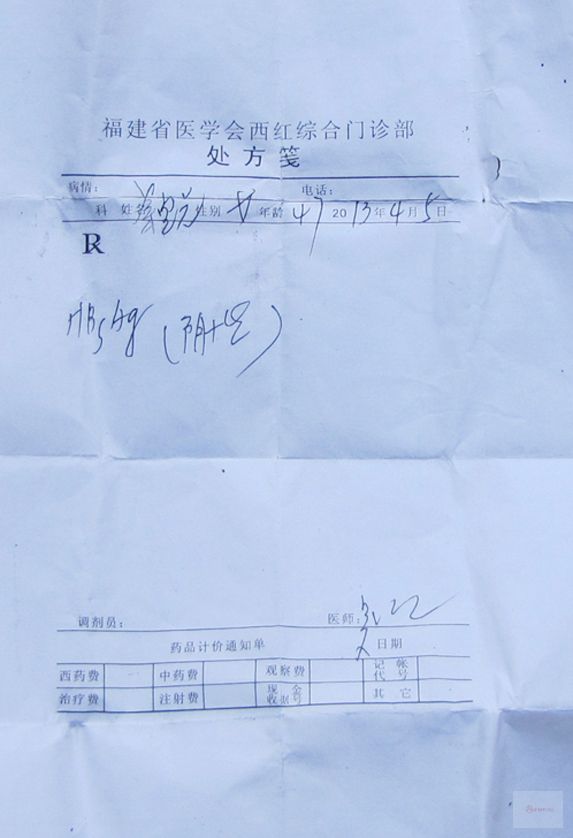 福建省医学会西红综合门诊部
处方笺
病情： 电话：
科 姓名 性别 女 年龄 47 2013年4月5日
R
HBsAg (阴性)
调剂员： 医师：
药品计价通知单 日期
西药费 中药费 观察费 记帐代号
治疗费 注射费 现金收据号 其它